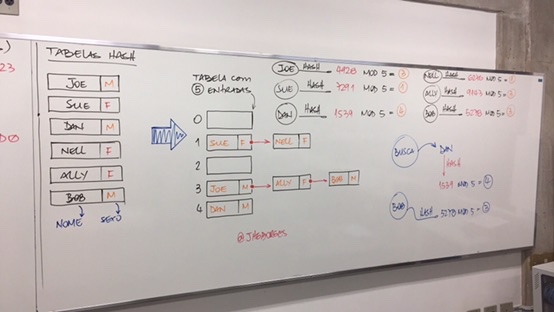 23
TABELAS HASH
JOE M
SUE F
DAN M
NELL F
ALLY F
BOB M
NOME SEXO
TABELA COM
5 ENTRADAS
0
1 SUE F NELL F
2
3 JOE M ALLY F BOB M
4 DAN M
JOE HASH 4928 MOD 5 = 3
SUE HASH 7291 MOD 5 = 1
DAN HASH 1539 MOD 5 = 4
NELL HASH MOD 5 = 1
ALLY HASH MOD 5 = 3
BOB HASH 5278 MOD 5 = 3
BUSCA DAN
HASH
1539 MOD 5 = 4
BOB HASH 5278 MOD 5 = 3